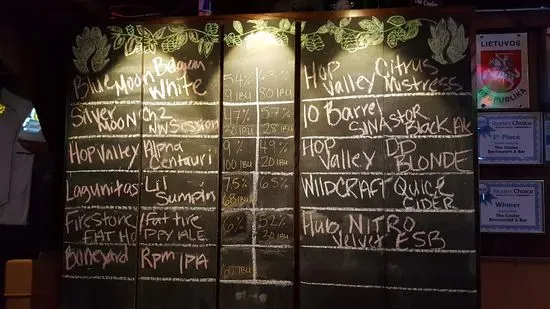 Blue Moon Belgian White 5.4% 9 IBU
6.3% 80 IBU Hop Valley Citrus Mistress
Silver Moon Ch2 NW Session 4.7% 30 IBU
5.7% 28 IBU 10 Barrel S1NISTOR Black Ale
Hop Valley Alpha Centauri 9% 100 IBU
4.9% 20 IBU Hop Valley DD BLONDE
Lagunitas Lil Sumpin 7.5% 68 IBU
6.5% WILDCRAFT Quick CIDER
Firestone 6%
5.2% 20 IBU Hub NITRO Velvet ESB
Boneyard Rpm IPA 60 IBU
LIETUVOS
RESPUBLIKA
Readers Choice
1st Place
The Cooler
Restaurant & Bar
Readers Choice
Winner
The Cooler
Restaurant & Bar